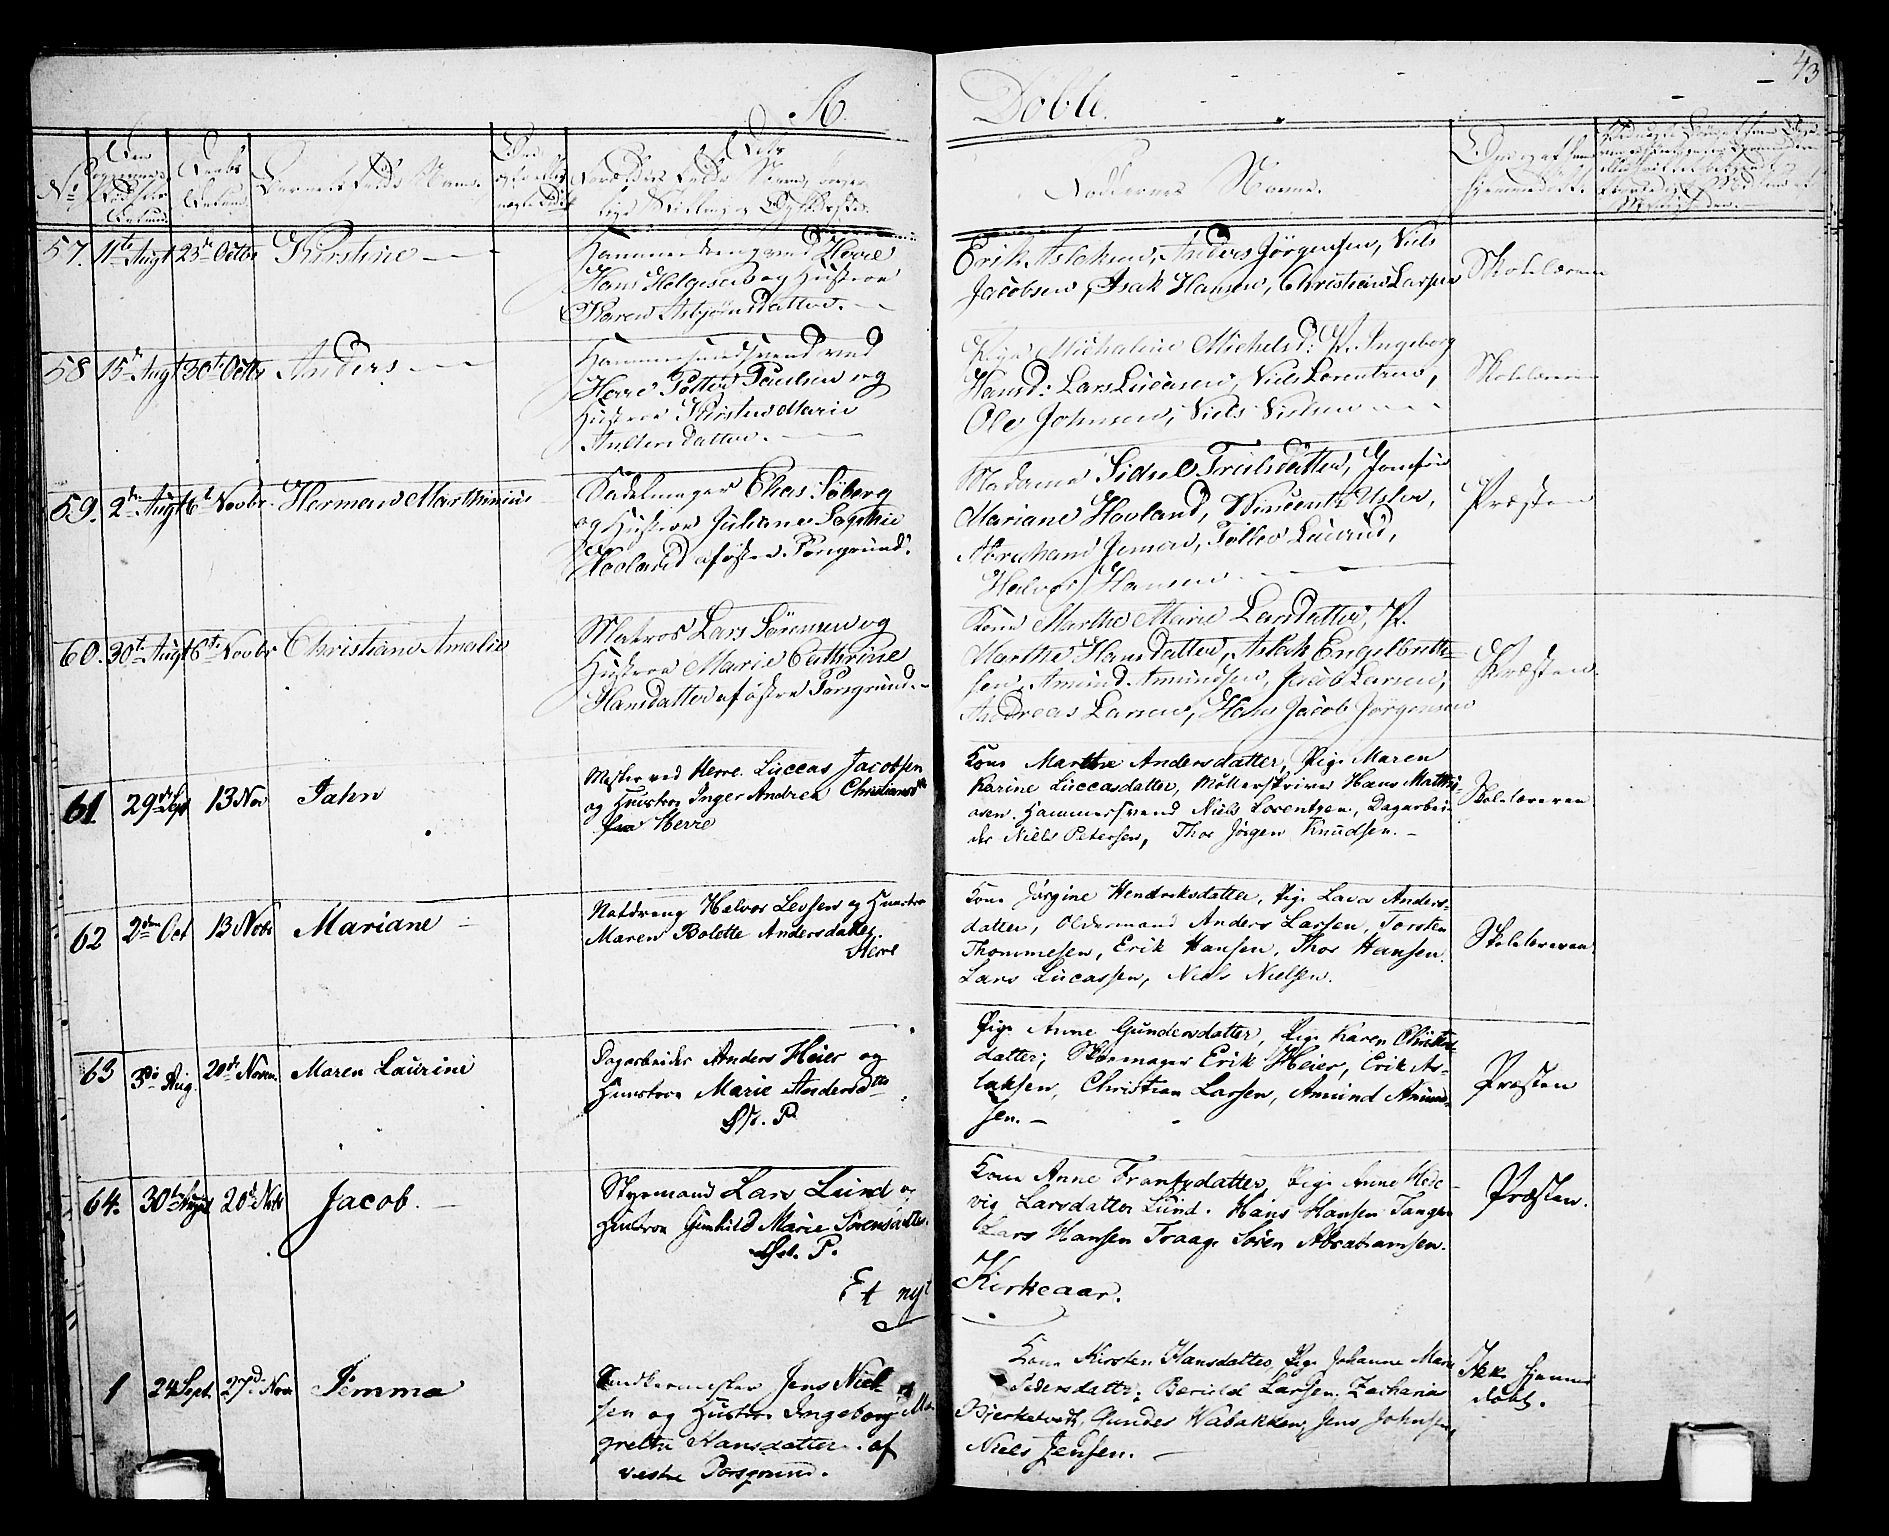 A.
Döbte.
43
No
Den
Födsels
Daabs
Datum
Barnets fulde Navn.
Faddernes Navne.
57. 11te Augt 23de Octbr Kirstine
Hammerdreng ved Herre
Hans Helgesen og Hustroe
Karen Asbjörnsdatter.
Erik Aslaksen, Anders Jörgensen, Niels
Jacobsen, Isak Hansen, Christian Larsen
Skolelæreren
58 15de Augt 30te Octbr Anders
Hammersmedsvend ved
Herre Petter Paulsen og
Hustroe Kirsten Marie
Andersdatter.
Pige Michaline Michelsd: P. Ingeborg
Hansd: Lars Lucasen, Niels Lorentzen,
Ole Johnsen, Niels Nielsen
Skolelæreren
59. 2den Augt 6t Novbr. Herman Marthinius
Sadelmager Elias Söberg
og Hustroe Juliane Sophie
Hovland af östre Porsgrund.
Madame Sidsel Trulsdatter, Jomfru
Mariane Hovland, Wincentz
Abraham Jensen, Tollev
Halvor Hansen
Præsten
60. 30te Augt 6te Novbr Christiane Amalie
Matros Lars Sörensen og
Hustroe Marie Cathrine
Hansdatter af östre Porsgrund.
Kone Marthe Marie Larsdatter, P.
Marthe Hansdatter, Aslak Engelbrette-
sen, Amund Amundsen, Jacob Larsen,
Andreas Larsen, Hans Jacob Jörgensen
Præsten.
61. 29de Sept 13 Nov Jahn
Mester ved Herre Luccas Jacobsen
og Hustro Inger Andrea Christiansdtr
fra Herre
Kone Marthe Andersdatter, Pige Maren
Karine Luccasdatter, Möllerskriver Hans Mathi-
asen. Hammersvend Niels Lorentzen, Dagarbei-
der Niels Petersen, Thor Jörgen Knudsen.
Skolelæreren
62 2den Oct 13 Novbr Mariane
Natdreng Halvor Levsen og Hustro
Maren Bolette Andersdatter.
Herre
Kone Jörgine Hendriksdatter, Pige Lava Anders-
datter, Oldermand Anders Larsen, Torsten
Thommesen, Erik Hansen, Thor Hansen.
Lars Lucassen, Niels Nielsen.
Skolelæreren.
63 3die Aug. 20de Novem. Maren Laurine
Dagarbeider Anders Heier og
Hustroe Marie Andersdtr
Öst. P.
Pige Anne Gundersdatter, Pige Karen Christens-
datter; Skomager Erik Heier, Erik As-
laksen, Christian Larsen, Amund Amund-
sen.
Præsten
64. 30te August 20de Novbr Jacob.
Styrmand Lars Lund og
Hustroe Gunhild Marie Sörensdatter.
Öst. P.
Kone Anne Frantzdatter, Pige Anne Hede-
vig Larsdatter Lund. Hans Hansen Tangen
Lars Hansen Traage Sören Abrahamsen.
Præsten.
Et nyt Kirkeaar.
1 24 Sept. 27d Nov Jemma
Jens Niel-
sen og Hustro Ingeborg Ma-
grethe Hansdatter. af
vestre Porsgrund.
Kone Kirsten Hansdatter, Pige Johanne Marie
Pedersdatter, Larsen, Zacharias
Bjerketvedt, Gunder Wabakken, Jens Johnsen,
Niels Jensen.
Ikke hjemme
döbt.